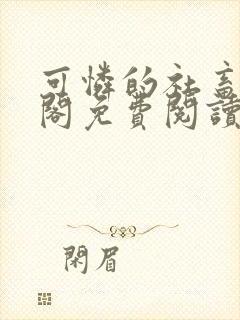 可憐的社畜
閣免費閱讀
閑眉